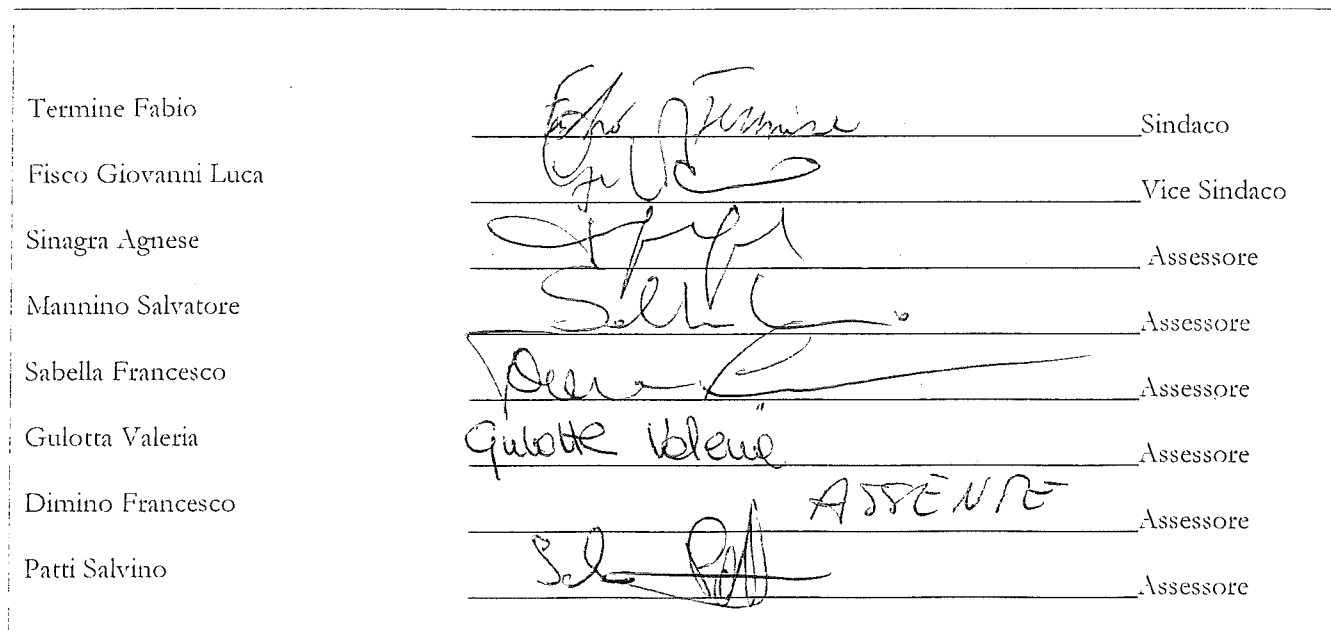 Termine Fabio Fabio Termine Sindaco
Fisco Giovanni Luca Vice Sindaco
Sinagra Agnese Assessore
Mannino Salvatore Assessore
Sabella Francesco Assessore
Gulotta Valeria Gulotta Valeria Assessore
Dimino Francesco ASSENTE Assessore
Patti Salvino Assessore